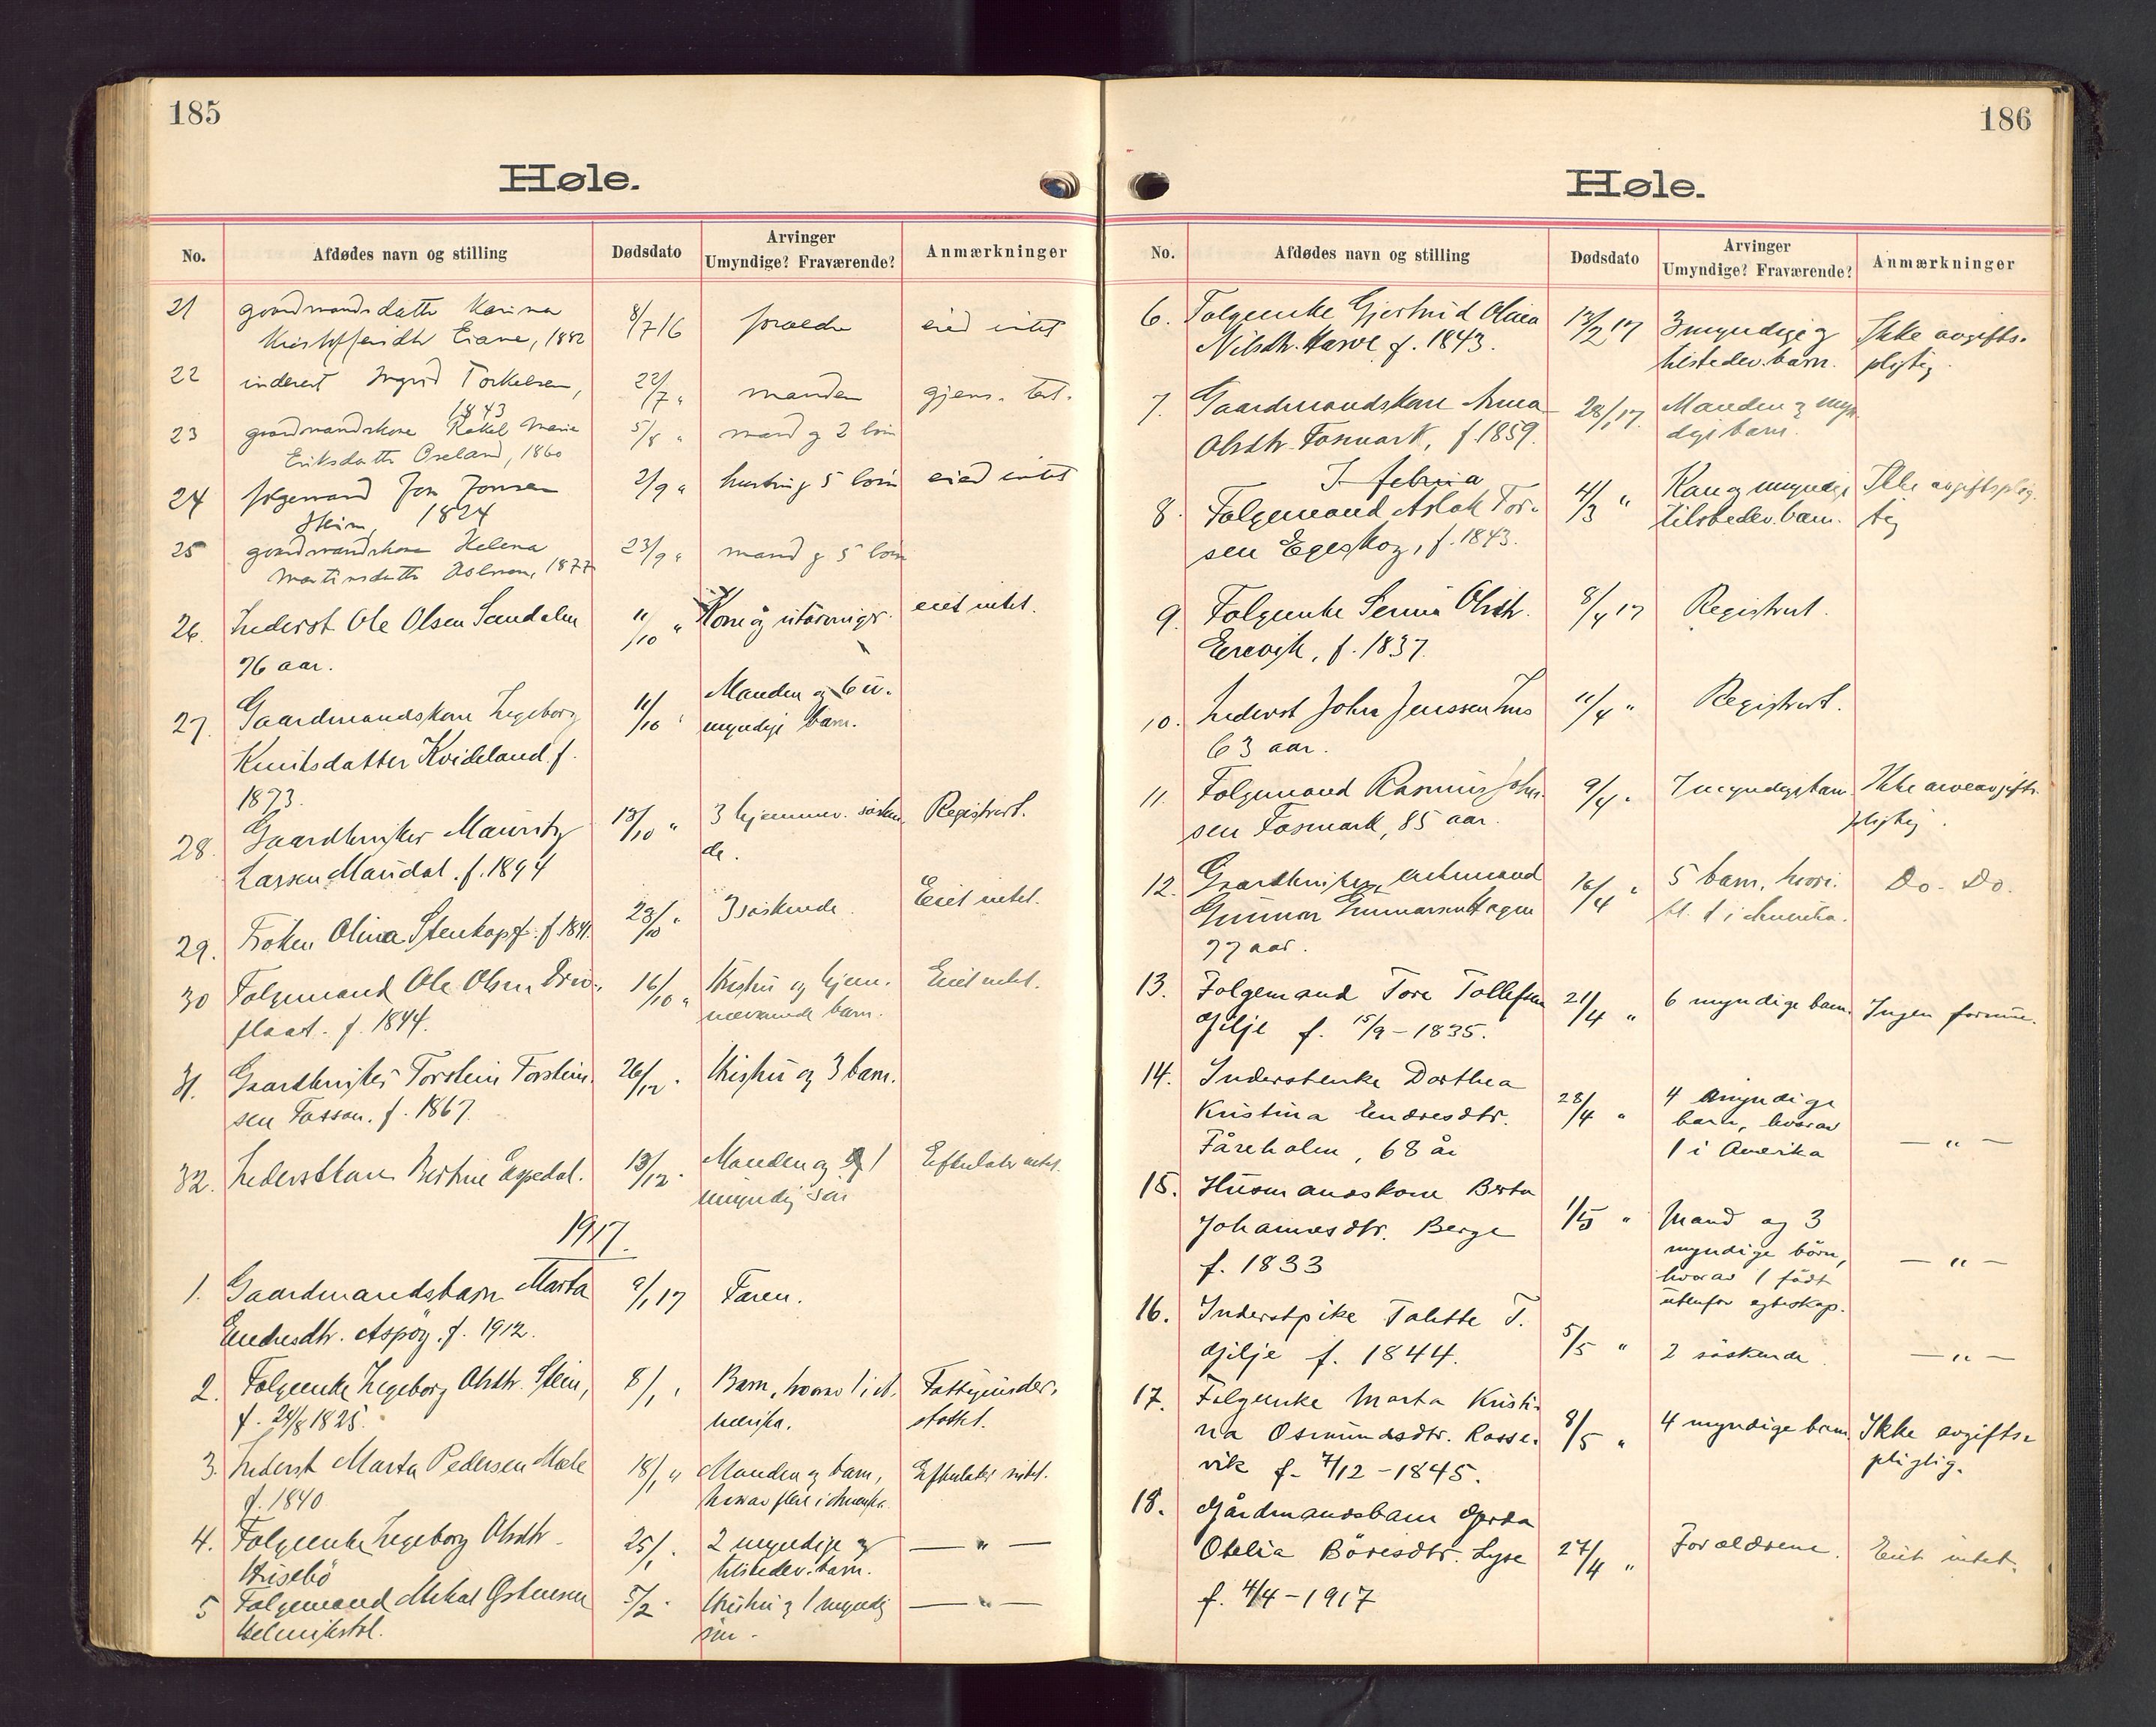 185
Høle.
No. Afdødes navn og stilling Dødsdato Arvinger Umyndige? Fraværende? Anmærkninger
21 gaardmandsdatter Karina 8/7 16 forældre eied intet
Eiane, 1882
22 inderst Ingrid Torkelsen, 22/7 " manden gjens. test.
1843
23 gaardmandskone Rakel Marie 5/8 " mand og 2 børn
Eriksdatter Oseland, 1860
24 folgemand Jon Jonsen 2/9 " hustru og 5 børn eied intet
Heim, 1824
25 gaardmandskone Helena 23/9 " mand og 5 børn
Martinsdatter 1877
26. Inderst Ole Olsen Sandalen 11/10 " Kone og utarvinger. eiet intet.
76 aar.
27. Gaardmandskone Ingeborg 11/10 " Manden og 6 u-
Knutsdatter Kvideland. f. myndige barn.
1873.
28. Gaardbruker Mauritz 13/10 " 3 hjemmev. søsken- Registrert.
Larsen Maudal. f. 1894 de.
29. Frøken Olina Stenkopf. f. 1841. 23/10 " 3 søskende. Eiet intet.
30 Folgemand Ole Olsen 16/10 " Hustru og hjem- Eiet intet.
flaat. f. 1844. meværende barn.
31. Gaardbruker Torstein Torstein- 26/12 " Hustru og 3 barn.
sen Fossan. f. 1867.
32. Inderstkone Bertine Espedal. 13/12 " Manden og 1 Efterlater intet.
myndig søn
1917.
1. Gaardmandsbarn Marta 9/1 17 Faren.
Endresdtr. Aspøy. f. 1912.
2. Folgeenke Ingeborg Olsdtr. Heim, 8/1 " Barn, hvorav 1 i A- Fattigunder-
f. 24/8 1825. merika. støttet.
3. Inderst Marta Pedersen Mæle 18/1 " Manden og barn, Efterlater intet.
f. 1840 hvorav flere i Amerika.
4. Folgeenke Ingeborg Olsdtr. 25/1 " 2 myndige og — " —
Husebø tilstedev. barn.
5 Folgemand Mikal Østensen 5/2 " Hustru og 1 myndig — " —
Helmikstøl. søn.
186
Høle.
No. Afdødes navn og stilling Dødsdato Arvinger Umyndige? Fraværende? Anmærkninger
6. Folgeenke Gjertrud Olina 13/2 17 3 myndige og Ikke avgifts-
Nilsdtr. f. 1843. tilstedev. barn. pligtig.
7. Gaardmandskone Anna 28/1 17. Manden og myn-
Olsdtr. Fosmark, f. 1859. dige barn.
I februa
8. Folgemand Aslak Tor- 4/3 " Kone og myndige Ikke avgiftsplig-
sen Egeskog, f. 1843. tilstedev. barn. tig
9. Folgeenke Serina Olsdtr. 8/4 17 Registrert.
Erevik, f. 1837.
10. Inderst John Jenssen Ims 11/4 " Registrert.
63 aar.
11. Folgemand Rasmus Johan- 9/4 " 7 myndige barn Ikke arveavgifts-
sen Fosmark, 85 aar. pligtig.
12. Gaardbruker, enkemand 16/4 " 5 barn, hvori- Do. Do.
Gunnar Gunnarsen Hogen bl. 1 i Amerika.
77 aar.
13. Folgemand Tore Tollefsen 21/4 " 6 myndige barn. Ingen formue.
Gilje f. 15/9 – 1835.
14. Inderstenke Dorthea 28/4 " 4 myndige
Kristina Endresdtr. barn, hvorav
Fåreholm, 68 år 1 i Amerika — " —
15. Husmandskone Berta 1/5 " Mand og 3
Johannesdtr. Berge myndige börn,
f. 1833 hvorav 1 födt — " —
utenfor egteskap.
16. Inderstpike Tolette T. 5/5 " 2 söskende. — " —
Gilje f. 1844.
17. Folgeenke Marta Kristi- 8/5 " 4 myndige barn. Ikke avgifts-
na Osmundsdtr. Rosse- pligtig.
vik f. 7/12 – 1845.
18. Gårdmandsbarn Gerda 27/4 " Forældrene. Eiet intet.
Otelia Böresdtr. Lyse
f. 4/4 – 1917